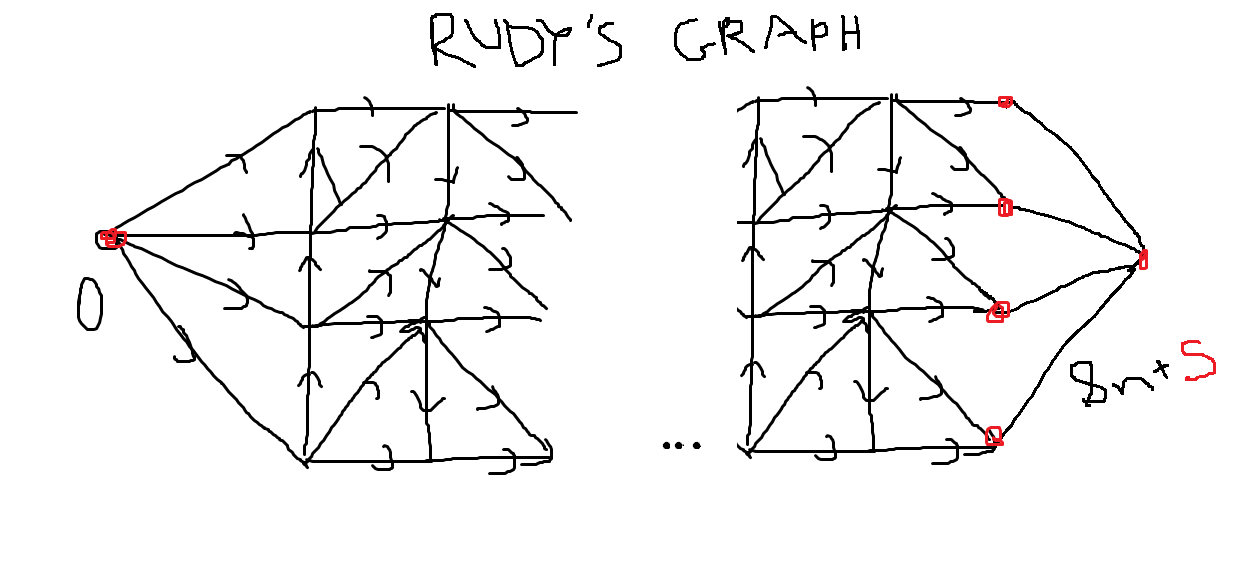 RUDY'S GRAPH
0
...
8n+5